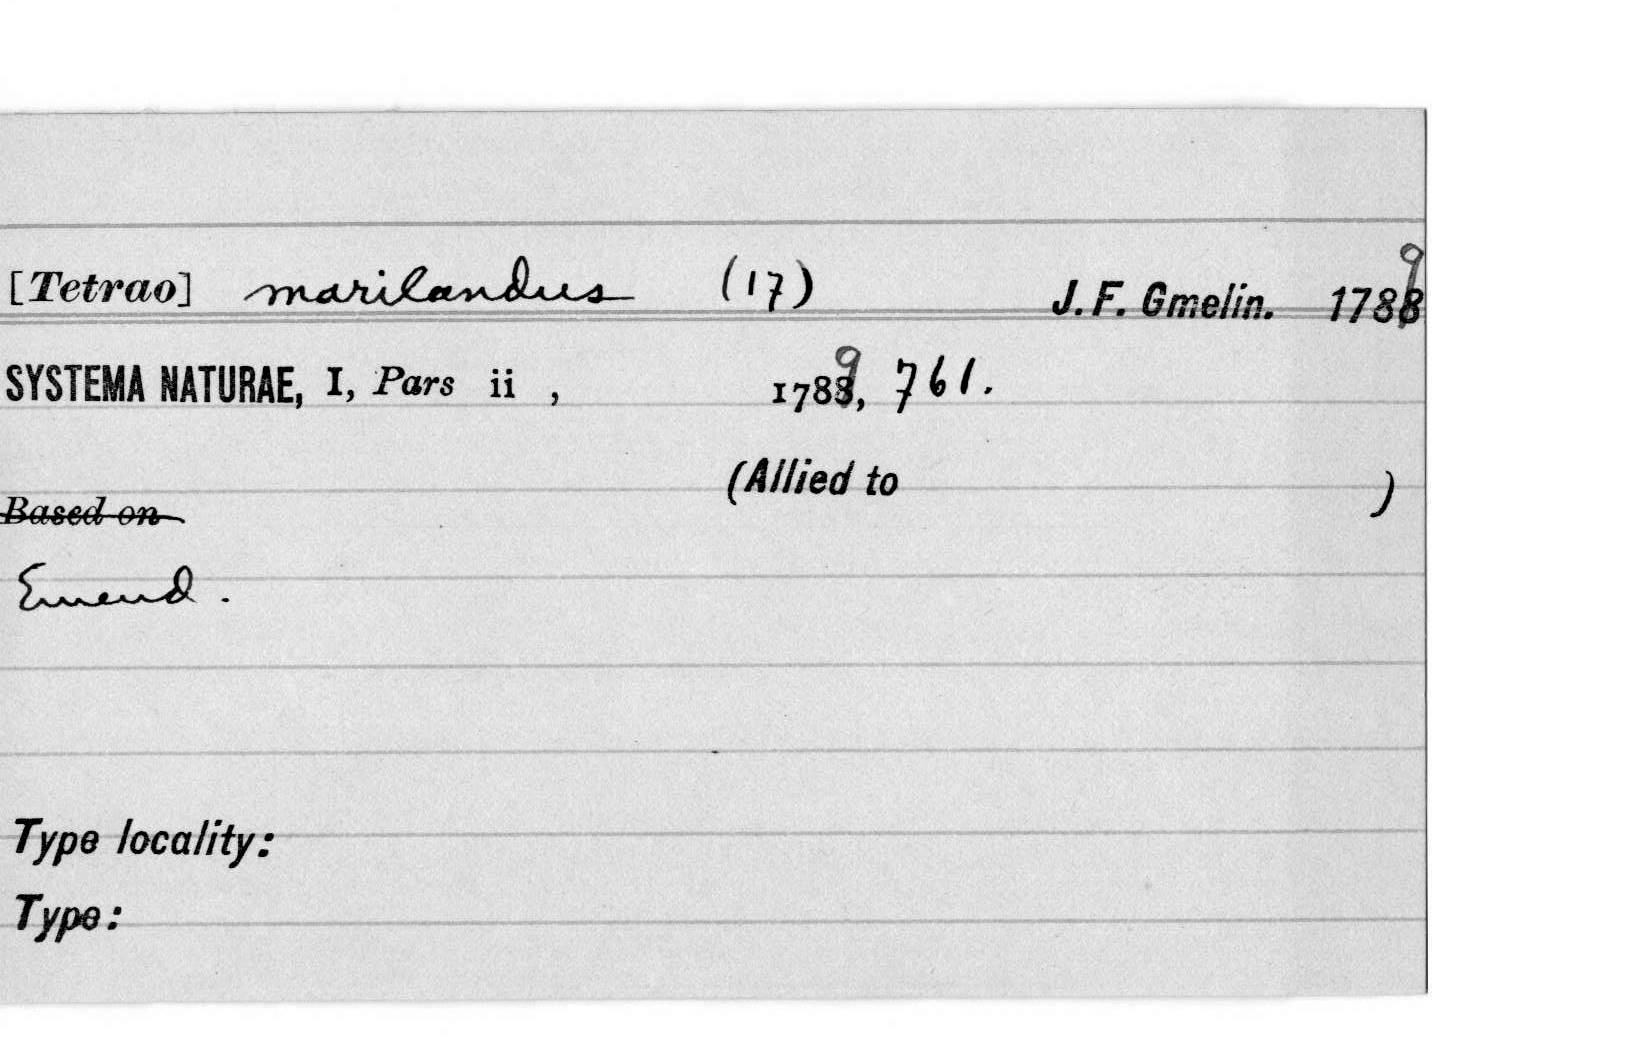 [Tetrao] marilandus (17) J. F. Gmelin. 1789
SYSTEMA NATURAE, I, Pars ii , 1789, 761.
(Allied to )
Based on
Emend.
Type locality:
Type: